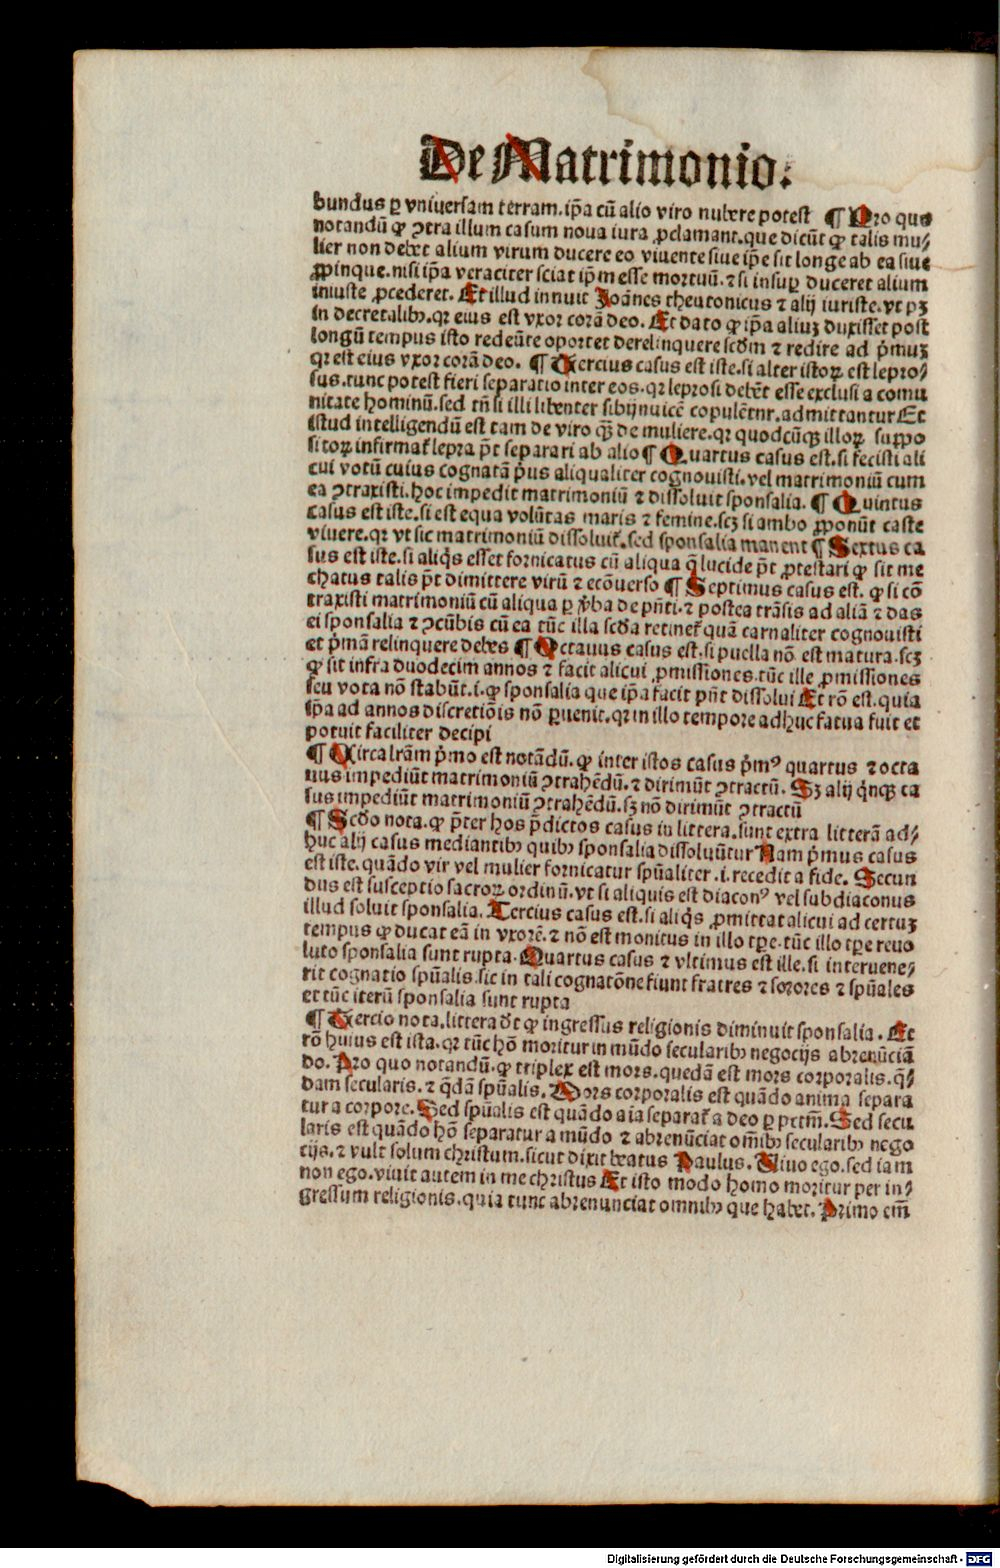 De Matrimonio.
bundus ꝑ vniuersam terram.ip̄a cū alio viro nubere potest ¶ Pro quo
notandū ꝙ ꝯtra illum casum noua iura ꝓclamant.que dicūt ꝙ talis mu⸗
lier non debet alium virum ducere eo viuente siue ip̄e sit longe ab ea siue
ꝓpinque.nisi ip̄a veraciter sciat ip̄m esse mortuū.⁊ si insuꝑ duceret alium
iniuste ꝓcederet. Et illud innuit Joānes theutonicus ⁊ alij iuriste.vt pꝫ
in decretalibꝰ.qꝛ eius est vxor corā deo. Et dato ꝙ ip̄a aliuꝫ duxisset post
longū tempus isto redeūte oportet derelinquere scd̄m ⁊ redire ad p̄muꝫ
qꝛ est eius vxor corā deo. ¶ Tercius casus est iste.si alter istoꝝ est lepro⸗
sus.tunc potest fieri separatio inter eos.qꝛ leprosi debēt esse exclusi a comu
nitate hominū.sed tn̄ si illi libenter sibijnuicē copulētur.admittantur Et
istud intelligendū est tam de viro qꝫ̄ de muliere.qꝛ quodcūqꝫ illoꝝ suppo
sitoꝝ infirmat̄ lepra p̄t separari ab alio ¶ Quartus casus est.si fecisti ali
cui votū cuius cognatā p̄us aliqualiter cognouisti.vel matrimoniū cum
ea ꝯtraxisti.hoc impedit matrimoniū ⁊ dissoluit sponsalia. ¶ Quintus
casus est iste.si est equa volūtas maris ⁊ femine.scꝫ si ambo ꝓponūt caste
viuere.qꝛ vt sic matrimoniū dissoluit̄.sed sponsalia manent ¶ Sextus ca
sus est iste.si aliq̄s esset fornicatus cū aliqua q̄ lucide p̄t ꝓtestari ꝙ sit me
chatus talis p̄t dimittere virū ⁊ ecōuerso ¶ Septimus casus est. ꝙ si cō
traxisti matrimoniū cū aliqua ꝑ v̄ba de pn̄ti.⁊ postea trāsis ad aliā ⁊ das
ei sponsalia ⁊ ꝯcūbis cū ea tūc illa scd̄a retinet̄ quā carnaliter cognouisti
et p̄mā relinquere debes ¶ Octauus casus est.si puella nō est matura.scꝫ
ꝙ sit infra duodecim annos ⁊ facit alicui ꝓmissiones.tūc ille ꝓmissiones
seu vota nō stabūt.i.ꝙ sponsalia que ip̄a facit pn̄t dissolui Et rō est.quia
ip̄a ad annos discretiōis nō ꝑuenit.qꝛ in illo tempore adhuc fatua fuit et
potuit faciliter decipi
¶ Circa lr̄am p̄mo est notādū.ꝙ inter istos casus p̄mꝰ quartus ⁊ octa
uus impediūt matrimoniū ꝯtrahēdū.⁊ dirimūt ꝯtractū. Sꝫ alij q̄nqꝫ ca
sus impediūt matrimoniū ꝯtrahēdū.sꝫ nō dirimūt ꝯtractū
¶ Scd̄o nota.ꝙ p̄ter hos p̄dictos casus in littera.sunt extra litterā ad⸗
huc alij casus mediantibꝰ quibꝰ sponsalia dissoluūtur Nam p̄mus casus
est iste.quādo vir vel mulier fornicatur spūaliter.i.recedit a fide. Secun
dus est susceptio sacroꝝ ordinū.vt si aliquis est diaconꝰ vel subdiaconus
illud soluit sponsalia. Tercius casus est.si aliq̄s ꝓmittat alicui ad certuꝫ
tempus ꝙ ducat eā in vxorē.⁊ nō est monitus in illo tꝑe.tūc illo tꝑe reuo
luto sponsalia sunt rupta. Quartus casus ⁊ vltimus est ille.si interuene⸗
rit cognatio spūalis.sic in tali cognatōne fiunt fratres ⁊ sorores ⁊ spūales
et tūc iterū sponsalia sunt rupta
¶ Tercio nota.littera dt̄ ꝙ ingressus religionis diminuit sponsalia. Et
rō huius est ista.qꝛ tūc hō moritur in mūdo secularibꝰ negocijs abrenūciā
do. Pro quo notandū.ꝙ triplex est mors.quedā est mors corporalis.q̄⸗
dam secularis.⁊ q̄dā spūalis. Mors corporalis est quādo anima separa
tur a corpore. Sed spūalis est quādo aīa separat̄ a deo ꝑ pctm̄. Sed secu
laris est quādo hō separatur a mūdo ⁊ abrenūciat om̄ibꝰ secularibꝰ nego
cijs.⁊ vult solum christum.sicut dixit beatus Paulus. Uiuo ego.sed iam
non ego.viuit autem in me christus Et isto modo homo moritur per in⸗
gressum religionis.quia tunc abrenunciat omnibꝰ que habet. Primo em̄
Digitalisierung gefördert durch die Deutsche Forschungsgemeinschaft - DFG